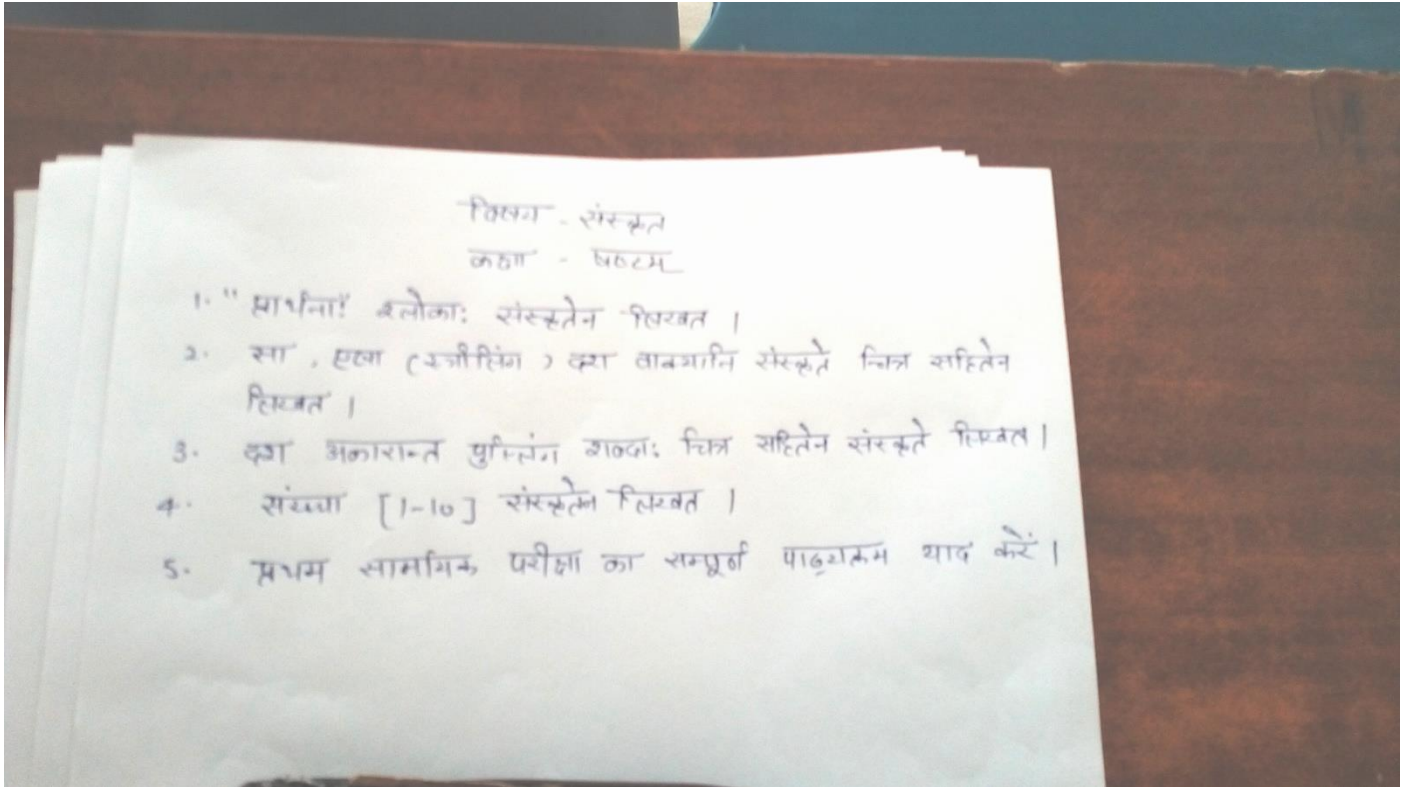 विषय - संस्कृत
कक्षा - षष्टम
1. "प्रार्थना" श्लोका: संस्कृतेन लिखत ।
2. सा , एषा (स्त्रीलिंग) दश वाक्यानि संस्कृते चित्र सहितेन
लिखत ।
3. दश अकारान्त पुल्लिंग शब्दा: चित्र सहितेन संस्कृते लिखत ।
4. संख्या [1-10] संस्कृतेन लिखत ।
5. प्रथम सामयिक परीक्षा का सम्पूर्ण पाठ्यक्रम याद करें ।